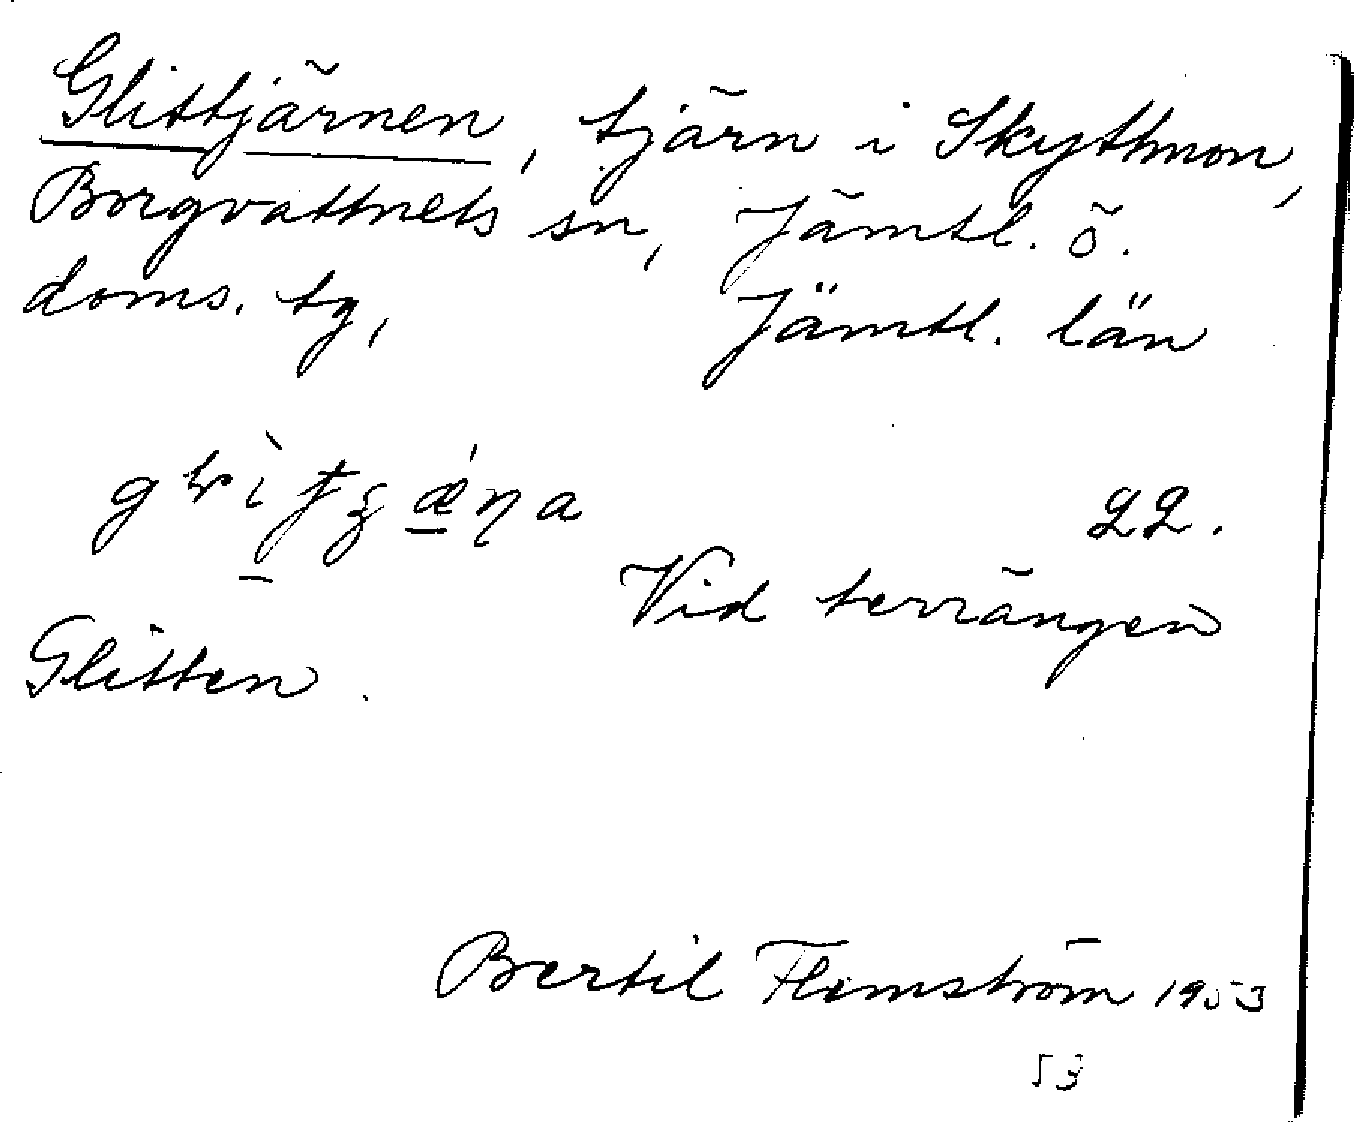 Glittjärnen, tjärn i Skyttmon,
Borgvattnets sn, Jämtl. ö.
doms. tg, Jämtl. län
22.
Vid terrängen
Glitten.
Bertil Flemström 1953
53